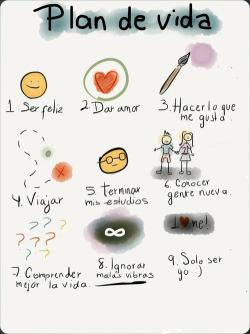 Plan de vida
1 Ser feliz
2. Dar amor
3. Hacer lo que
me gusta.
4. Viajar
5. terminar
mis estudios
6. Conocer
gente nueva.
? ? ? ? ? ? ?
I ♥ me!
7. Comprender
mejor la vida.
8. Ignorar
malas vibras
9. Solo ser
yo :)